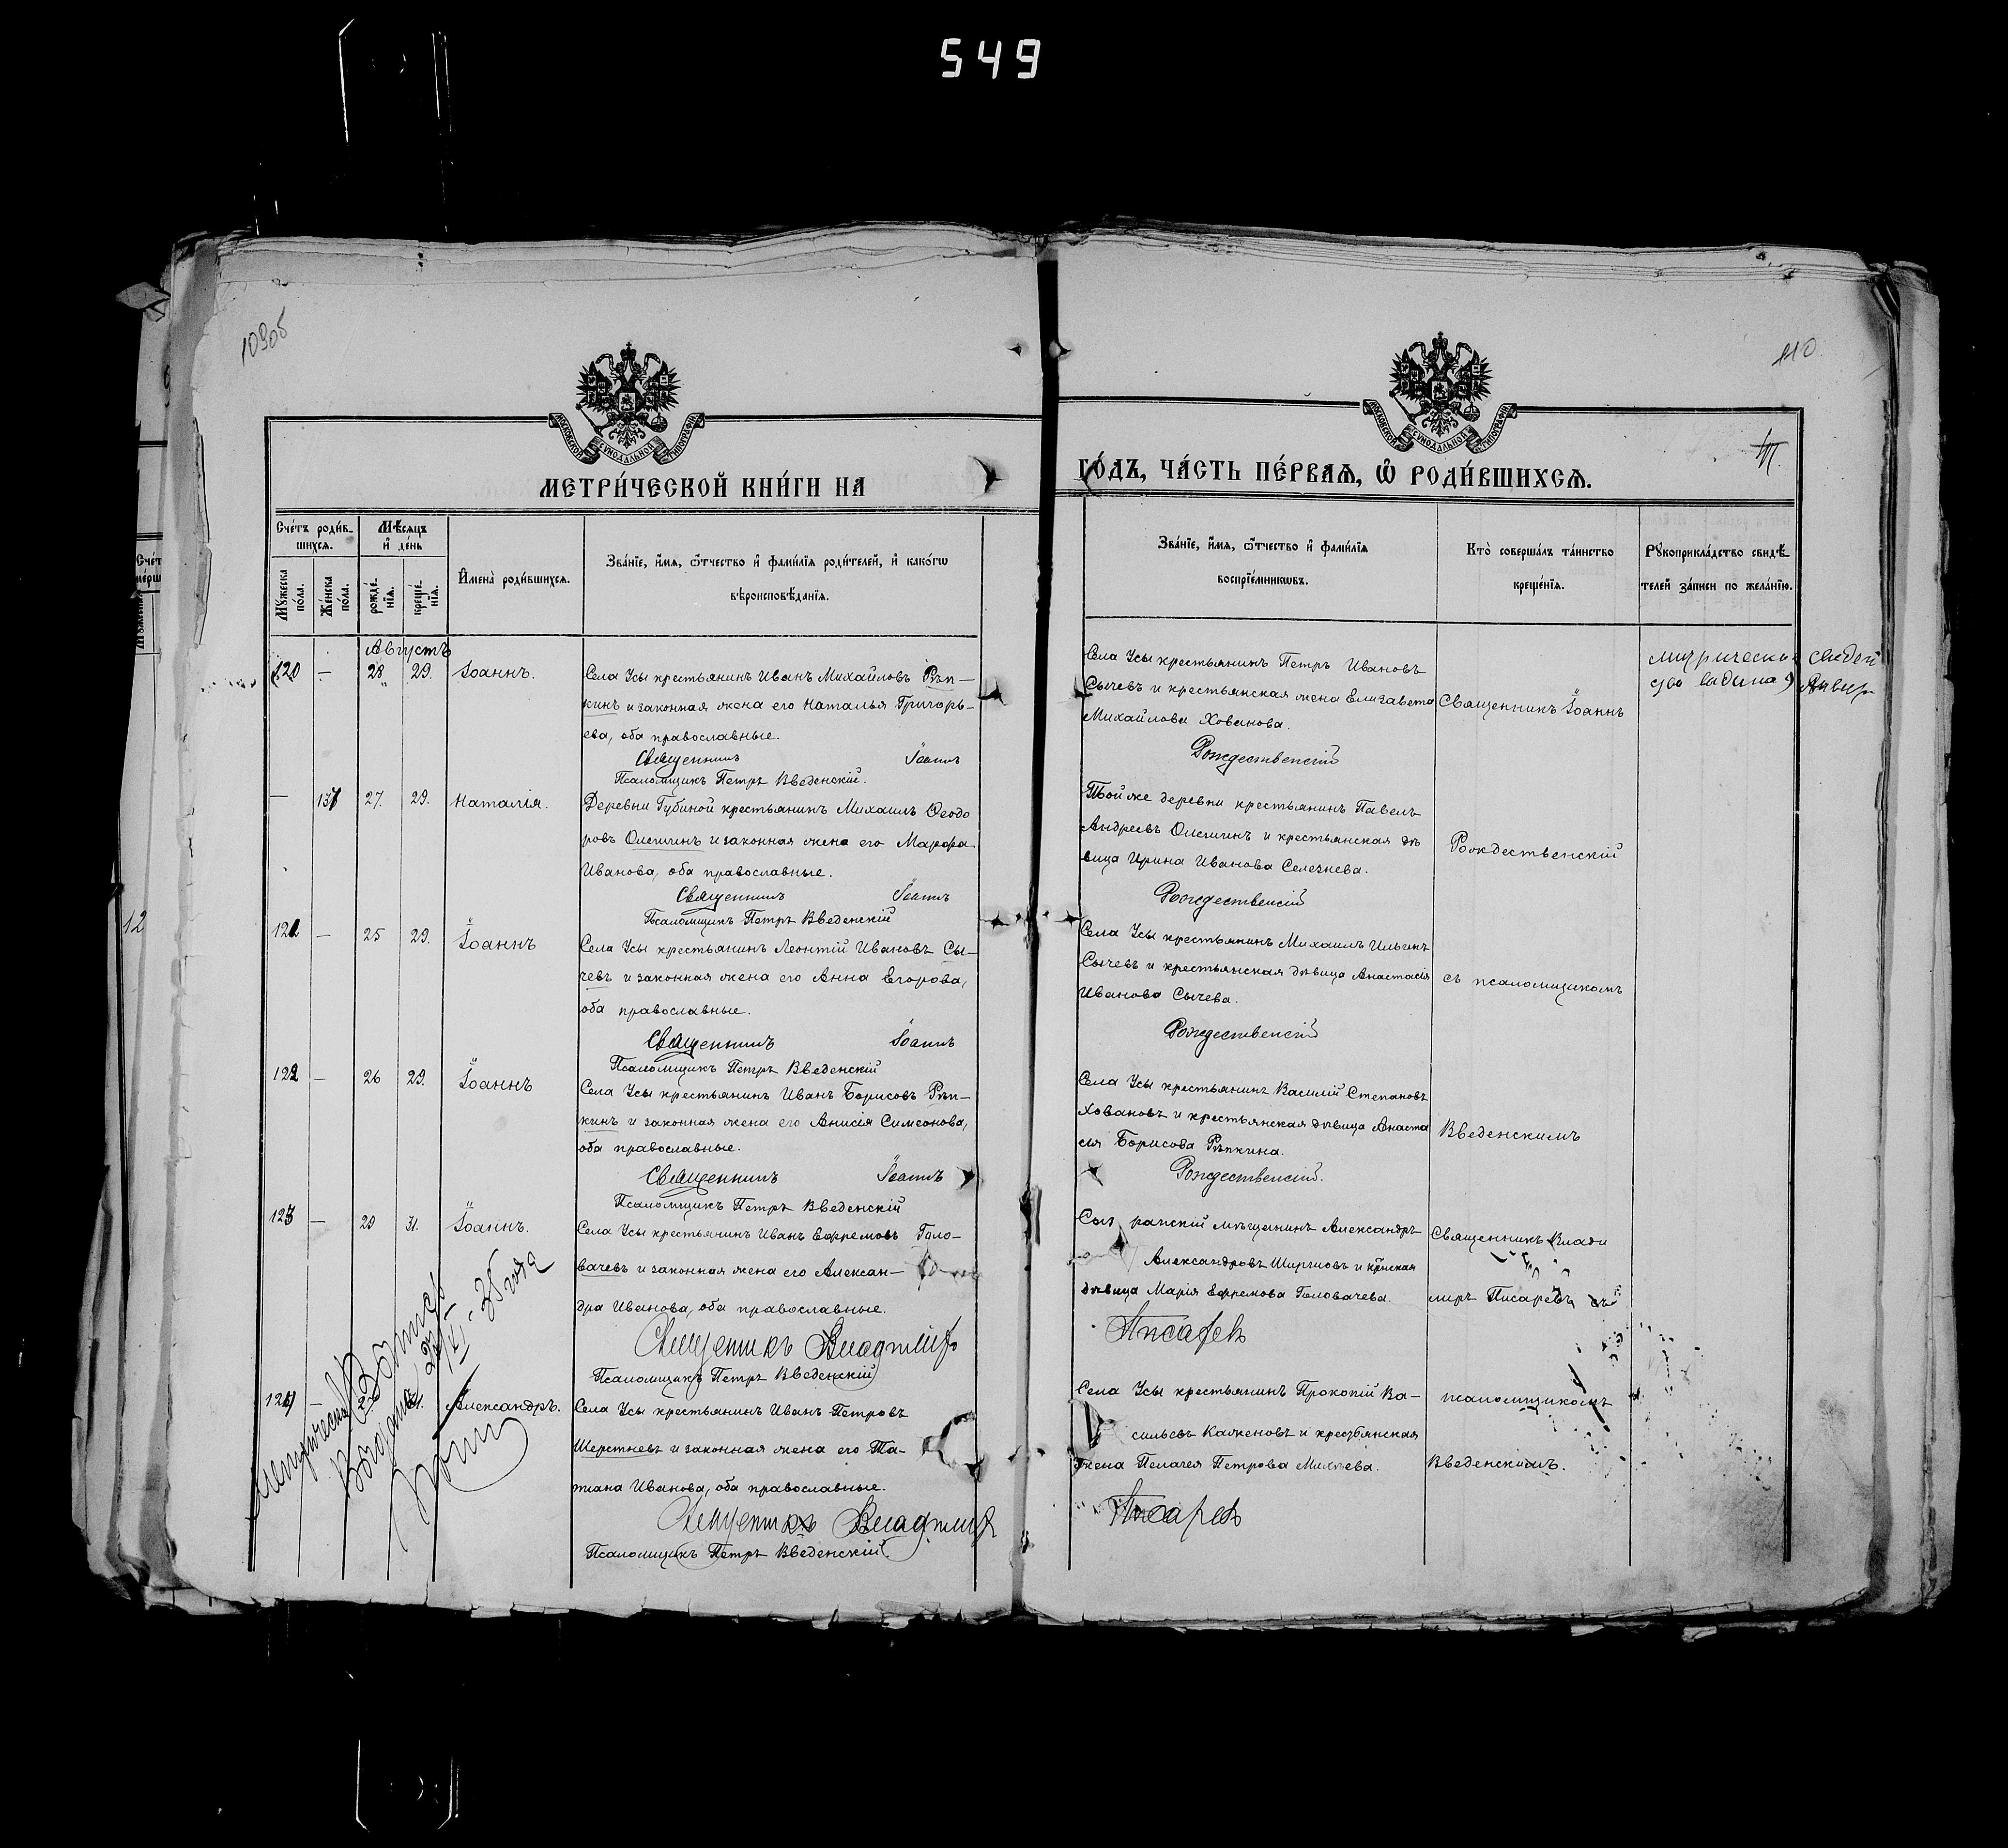 549
109об
110
МОСКОВСКОЙ СѴНОДАЛЬНОЙ ТИПОГРАФІИ
МОСКОВСКОЙ СѴНОДАЛЬНОЙ ТИПОГРАФІИ
МЕТРИ́ЧЕСКОЙ КНИ́ГИ НА
ГО́ДЪ, ЧА́СТЬ ПЕ́РВАѦ, Ѽ РОДИ́ВШИХСѦ.
Сче́тъ роди́в-
шихсѧ.
Мꙋ́жеска
по́ла.
Же́нска
по́ла.
Мѣ́сѧцъ
и҆ де́нь
рожде́-
нїѧ.
креще́-
нїѧ.
И҆мена̀ роди́вшихсѧ.
Зва́нїе, и҆́мѧ, ѻ҆́тчество и҆ фами́лїѧ роди́телей, и҆ како́гѡ
вѣроисповѣ́данїѧ.
Зва́нїе, и҆́мѧ, ѻ҆́тчество и҆ фами́лїѧ
воспрїе́мникѡвъ.
Кто̀ соверша́лъ та́инство
креще́нїѧ.
Рꙋкоприкла́дство свидѣ́-
телей за́писи по жела́нїю.
Августъ
120 — 28 29. Іоаннъ.
Села Усы крестьянинъ Иванъ Михайловъ Рѣп-
кинъ и законная жена его Наталья Григорь-
ева, оба православные.
Священникъ Іоаннъ
Псаломщикъ Петръ Введенскій.
Села Усы крестьянинъ Петръ Ивановъ
Сычевъ и крестьянская жена Елизавета
Михайлова Хованова.
Рождественскій
Священникъ Іоаннъ
— 137 27. 29. Наталія.
Деревни Губиной крестьянинъ Михаилъ Ѳеодо
ровъ Олешинъ и законная жена его Марѳа
Иванова, оба православные.
Священникъ Іоаннъ
Псаломщикъ Петръ Введенскій
Той же деревни крестьянинъ Павелъ
Андреевъ Олешинъ и крестьянская дѣ
вица Ирина Иванова Селезнева.
Рождественскій
Рождественскій
121 — 25 29. Іоаннъ
Села Усы крестьянинъ Леонтій Ивановъ Сы-
чевъ и законная жена его Анна Егорова,
оба православные.
Священникъ Іоаннъ
Псаломщикъ Петръ Введенскій
Села Усы крестьянинъ Михаилъ Ильинъ
Сычевъ и крестьянская дѣвица Анастасія
Иванова Сычева.
Рождественскій
съ псаломщикомъ
122 — 26 29. Іоаннъ
Села Усы крестьянинъ Иванъ Борисовъ Рѣп-
кинъ и законная жена его Анисія Симеонова,
оба православные.
Священникъ Іоаннъ
Псаломщикъ Петръ Введенскій
Села Усы крестьянинъ Василій Степановъ
Ховановъ и крестьянская дѣвица Анаста
сія Борисова Рѣпкина.
Рождественскій.
Введенскимъ
123 — 29 31. Іоаннъ.
Села Усы крестьянинъ Иванъ Ефремовъ Голо-
вачевъ и законная жена его Алексан-
дра Иванова, оба православные.
Священникъ Владиміръ
Псаломщикъ Петръ Введенскій
мѣщанинъ Александръ
Александровъ и
дѣвица Марія Ефремова Головачева.
Писаревъ
Священникъ Влади
миръ Писаревъ съ
124 — Александръ.
Села Усы крестьянинъ Иванъ Петровъ
Шерстневъ и законная жена его Та-
тіана Иванова, оба православные.
Священникъ Владиміръ
Псаломщикъ Петръ Введенскій.
Села Усы крестьянинъ Прокопій Ва-
сильевъ и крестьянская
жена Пелагея Петрова
Писаревъ
псаломщикомъ
Введенскимъ.